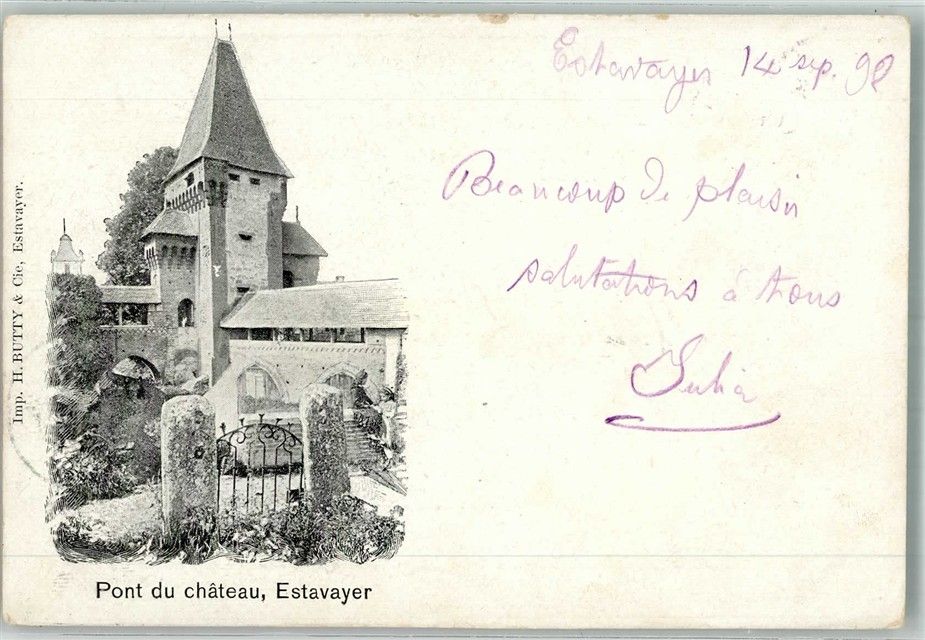 Estavayer 14 sep. 98
Beaucoup de plaisir
salutations à tous
Julia
Imp. H. BUTTY & Cie, Estavayer.
Pont du château, Estavayer